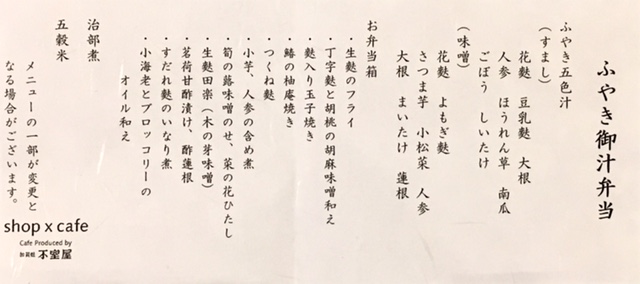 ふやき御汁弁当
ふやき五色汁
（すまし）
花麩 豆乳麩 大根
人参 ほうれん草 南瓜
ごぼう しいたけ
（味噌）
花麩 よもぎ麩
さつま芋 小松菜 人参
大根 まいたけ 蓮根
お弁当箱
・生麩のフライ
・丁字麩と胡桃の胡麻味噌和え
・麩入り玉子焼き
・鰆の柚庵焼き
・つくね麩
・小芋、人参の含め煮
・筍の蕗味噌のせ、菜の花ひたし
・生麩田楽（木の芽味噌）
・茗荷甘酢漬け、酢蓮根
・すだれ麩のいなり煮
・小海老とブロッコリーの
オイル和え
治部煮
五穀米
メニューの一部が変更と
なる場合がございます。
shop x cafe
Cafe Produced by
加賀麩 不室屋